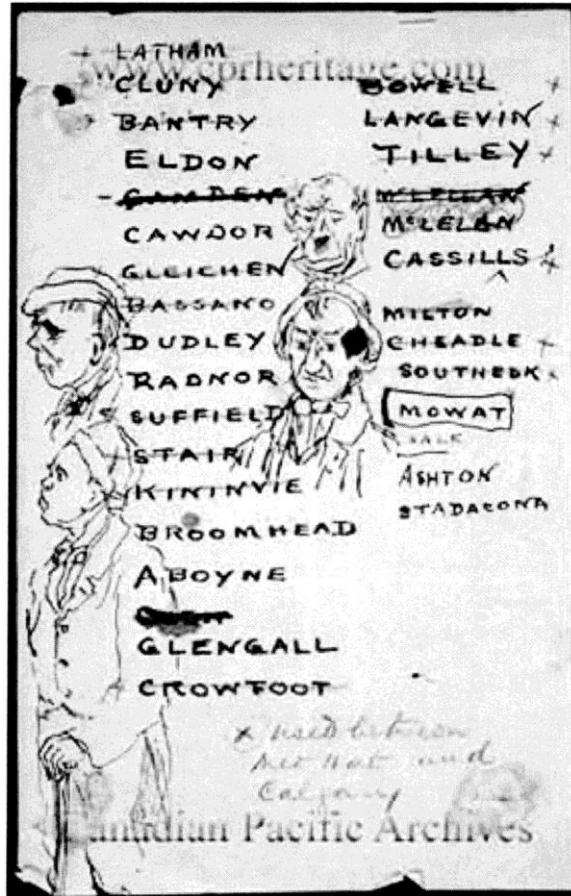 www.cprheritage.com
LATHAM
CLUNY
BANTRY
ELDON
CAMDEN
CAWDOR
GLEICHEN
BASSANO
DUDLEY
RADNOR
SUFFIELD
STAIR
KININVIE
BROOMHEAD
ABOYNE
GLENGALL
CROWFOOT
BOWELL
LANGEVIN
TILLEY
McLELLAN
McLELAN
CASSILLS
MILTON
CHEADLE
SOUTHESK
MOWAT
ASHTON
STADACONA
x used between
Med Hat and
Calgary
Canadian Pacific Archives